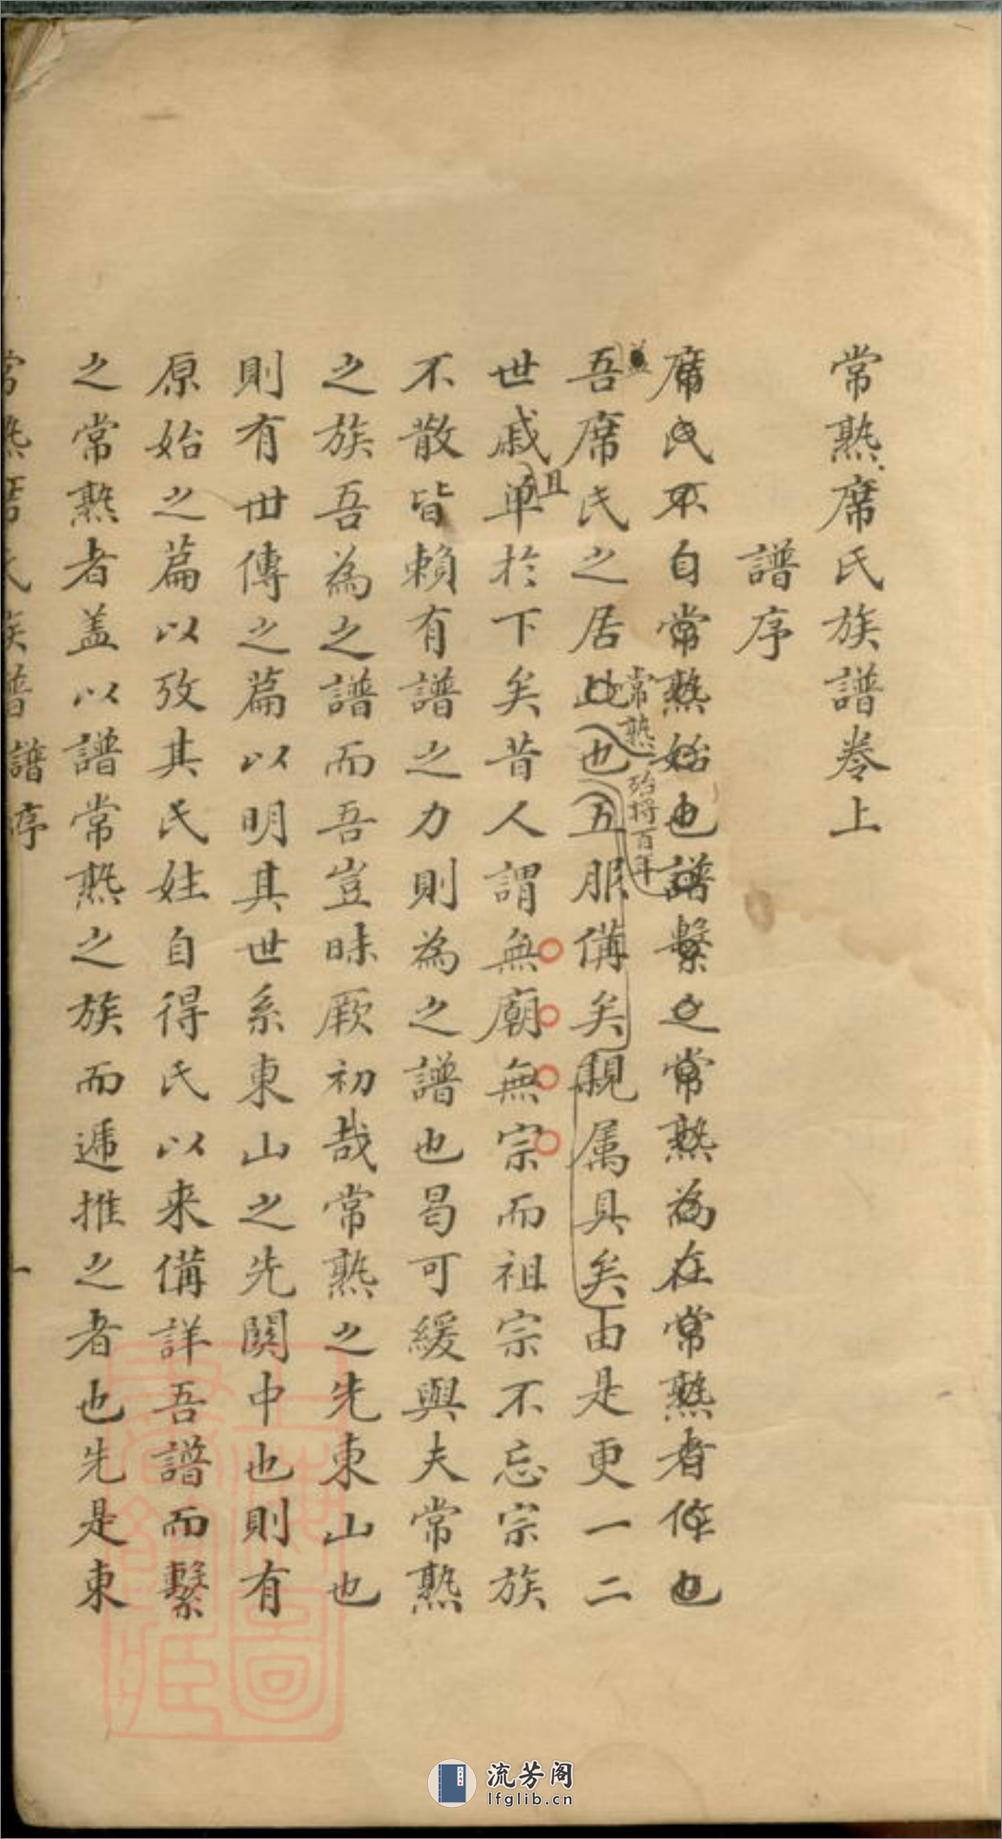 常熟席氏族譜卷上
譜序
席氏不自常熟始也譜繫之常熟為在常熟者作也
常熟
殆将百年
吾席氏之居此也五服備矣親属具矣由是更一二
且
世戚单於下矣昔人謂無廟無宗而祖宗不忘宗族
不散皆賴有譜之力則為之譜也曷可緩與夫常熟
之族吾為之譜而吾豈昧厥初哉常熟之先東山也
則有世傳之篇以明其世系東山之先関中也則有
原始之篇以攷其氏姓自得氏以来備詳吾譜而繫
之常熟者盖以譜常熟之族而遞推之者也先是東
常熟席氏族譜 譜序 一
流芳阁
lfglib.cn